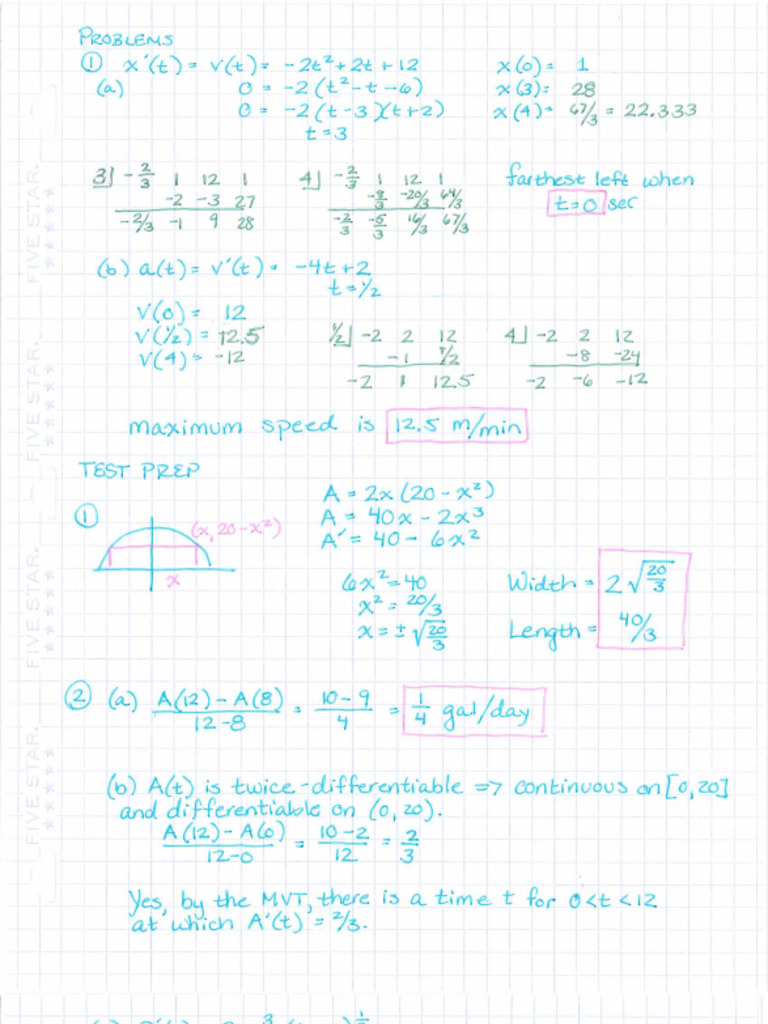 PROBLEMS
① x′(t) = v(t) = -2t² + 2t + 12    x(0) = 1
(a)    0 = -2(t² - t - 6)    x(3) = 28
0 = -2(t - 3)(t + 2)    x(4) = 67/3 = 22.333
t = 3
3| -2/3  1  12  1    4| -2/3  1  12  1    farthest left when
-2  -3  27    -8/3  -20/3  64/3    t = 0 sec
-2/3  -1  9  28    -2/3  -5/3  16/3  67/3
(b) a(t) = v′(t) = -4t + 2
t = 1/2
v(0) = 12
v(1/2) = 12.5    1/2| -2  2  12    4| -2  2  12
v(4) = -12    -1  1/2    -8  -24
-2  1  12.5    -2  -6  -12
maximum speed is 12.5 m/min
TEST PREP
① A = 2x(20 - x²)
(x, 20 - x²)    A = 40x - 2x³
A′ = 40 - 6x²
x    6x² = 40    Width = 2√(20/3)
x² = 20/3
x = ±√(20/3)    Length = 40/3
② (a) (A(12) - A(8))/(12 - 8) = (10 - 9)/4 = 1/4 gal/day
(b) A(t) is twice-differentiable ⇒ continuous on [0, 20]
and differentiable on (0, 20).
(A(12) - A(0))/(12 - 0) = (10 - 2)/12 = 2/3
Yes, by the MVT, there is a time t for 0 < t < 12
at which A′(t) = 2/3.
FIVE STAR.
FIVE STAR.
FIVE STAR.
FIVE STAR.